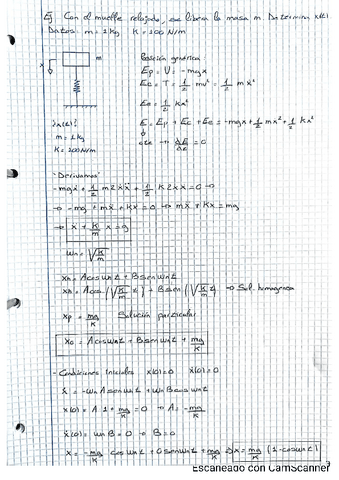 Ej Con el muelle relajado, se libera la masa m. Determina x(t)
Datos: m=1kg K=100N/m
x
m
Posición genérica
Ep = U = -mgx
Ec = T = 1/2 mv² = 1/2 mẋ²
Ee = 1/2 Kx²
¿x(t)?
m=1kg
K=100N/m
E = Ep + Ec + Ee = -mgx + 1/2 mẋ² + 1/2 Kx²
cte → ΔE/Δt = 0
"Derivamos"
-mgẋ + 1/2 m2ẋẍ + 1/2 K2xẋ = 0 →
→ -mg + mẍ + Kx = 0 → mẍ + Kx = mg
→ ẍ + K/m x = g
ωn = √(K/m)
xh = A cos ωn t + B sen ωn t
xh = A cos (√(K/m) t) + B sen (√(K/m) t) → Sol. homogenea
xp = mg/K Solución particular
xG = A cos ωn t + B sen ωn t + mg/K
- Condiciones Iniciales x(0)=0 ẋ(0)=0
ẋ = -ωn A sen ωn t + ωn B cos ωn t
x(0) = A·1 + mg/K = 0 → A = -mg/K
ẋ(0) = ωn B = 0 → B = 0
x = -mg/K cos ωn t + 0 sen ωn t + mg/K → x = mg/K (1 - cos ωn t)
Escaneado con CamScanner